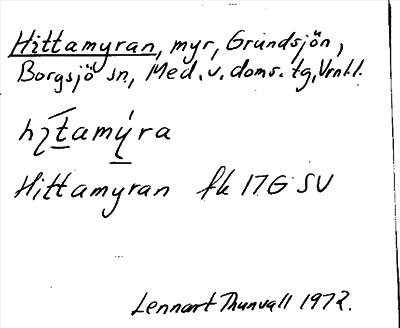 Hittamyran, myr, Grundsjön,
Borgsjö sn, Med. v. doms. tg, Vrnl.
hìtamýra
Hittamyran fk 17G SV
Lennart Thunvall 1972.